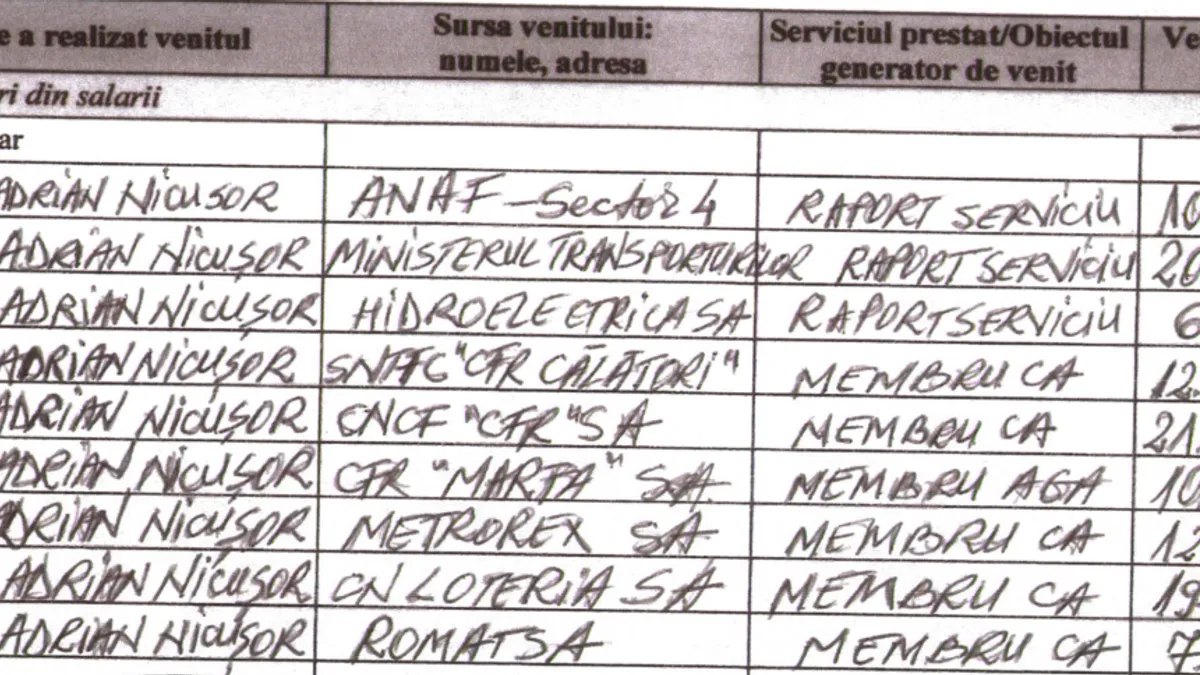 e a realizat venitul Sursa venitului: numele, adresa Serviciul prestat/Obiectul generator de venit Ve
ri din salarii
ar
ADRIAN NICUSOR ANAF - Sector 4 RAPORT SERVICIU 10
ADRIAN NICUȘOR MINISTERUL TRANSPORTURILOR RAPORT SERVICIU 20
ADRIAN NICUȘOR HIDROELECTRICA SA RAPORT SERVICIU 6
ADRIAN NICUȘOR SNTFC "CFR CĂLĂTORI" MEMBRU CA 12
ADRIAN NICUȘOR CNCF "CFR" SA MEMBRU CA 21
ADRIAN NICUȘOR CFR "MARFA" SA MEMBRU AGA 10
ADRIAN NICUȘOR METROREX SA MEMBRU CA 12
ADRIAN NICUȘOR CN LOTERIA SA MEMBRU CA 19
ADRIAN NICUȘOR ROMATSA MEMBRU CA 7